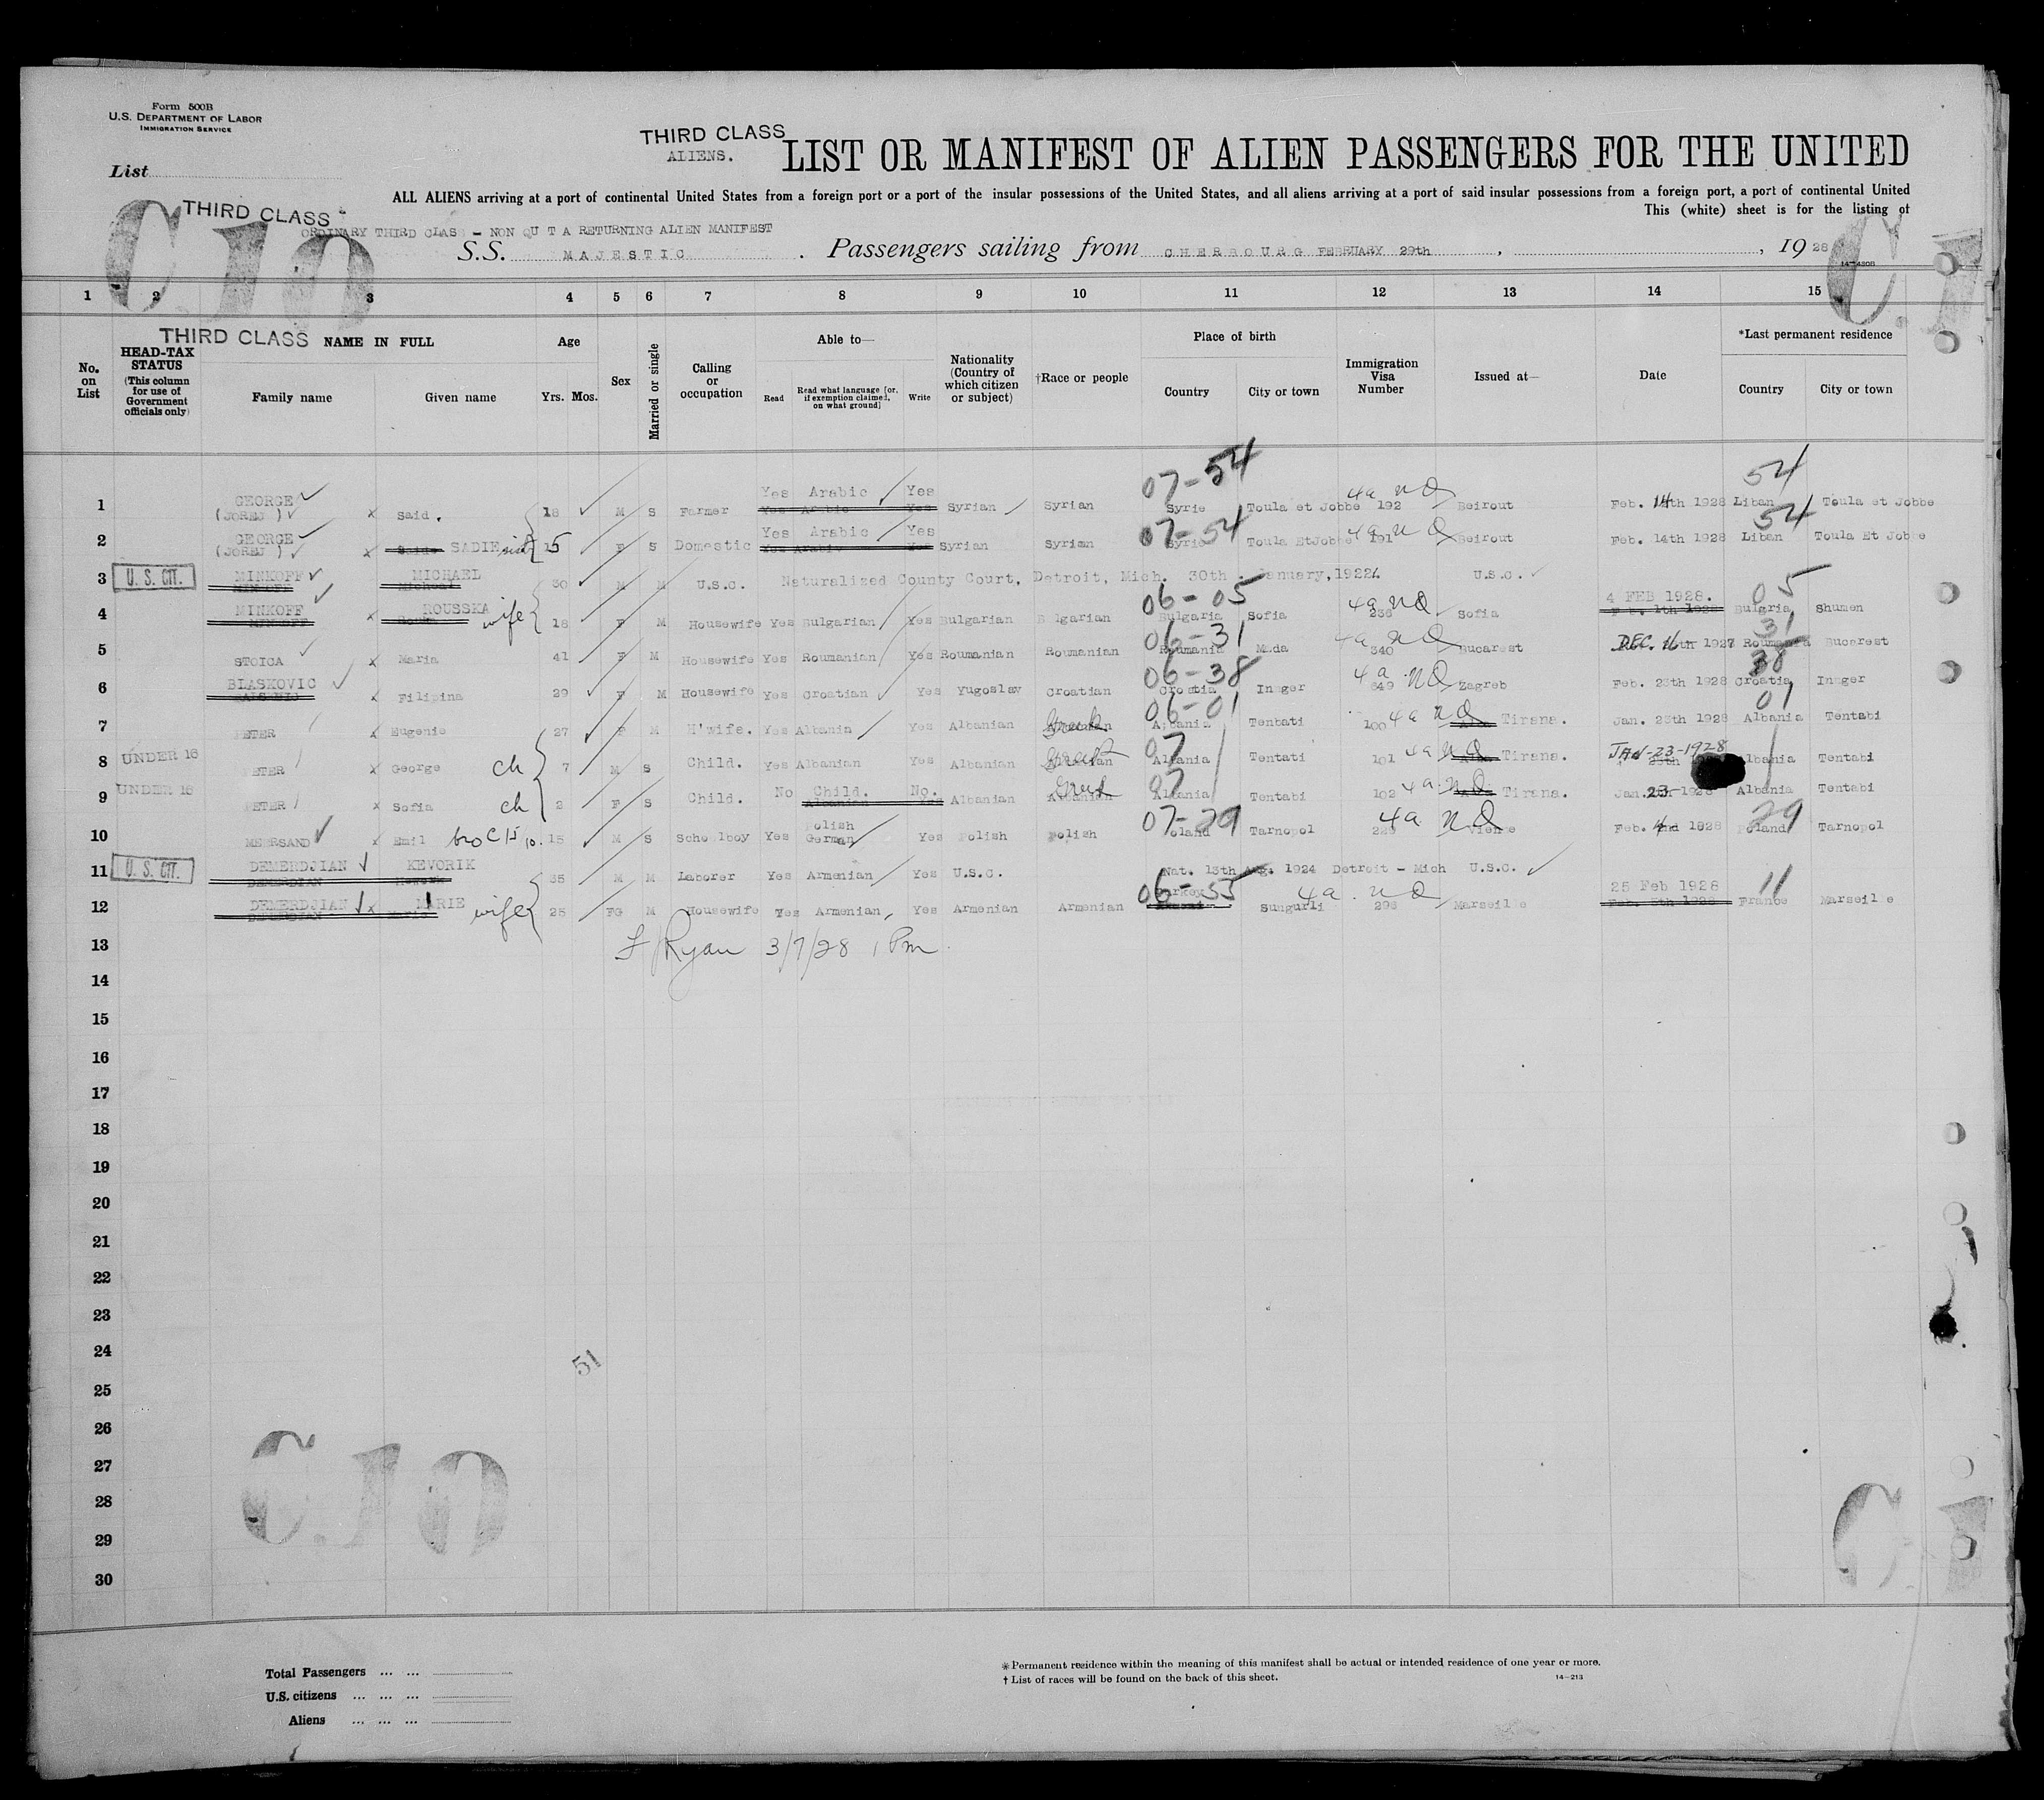 Form 500B
U.S. DEPARTMENT OF LABOR
IMMIGRATION SERVICE
List
THIRD CLASS
ALIENS.
LIST OR MANIFEST OF ALIEN PASSENGERS FOR THE UNITED
ALL ALIENS arriving at a port of continental United States from a foreign port or a port of the insular possessions of the United States, and all aliens arriving at a port of said insular possessions from a foreign port, a port of continental United
This (white) sheet is for the listing of
THIRD CLASS
C10
ORDINARY THIRD CLASS - NON QU T A RETURNING ALIEN MANIFEST
S.S. MAJESTIC. Passengers sailing from CHERBOURG FEBRUARY 29th, , 1928
1 2 3 4 5 6 7 8 9 10 11 12 13 14 15
THIRD CLASS
No. on List
HEAD-TAX STATUS (This column for use of Government officials only)
NAME IN FULL
Family name Given name
Age
Yrs. Mos.
Sex
Married or single
Calling or occupation
Able to—
Read Read what language [or, if exemption claimed, on what ground] Write
Nationality (Country of which citizen or subject)
†Race or people
Place of birth
Country City or town
Immigration Visa Number
Issued at—
Date
*Last permanent residence
Country City or town
1 GEORGE (JOREJ) x Said. 18 M S Farmer Yes Arabic Yes Syrian Syrian 07-54 Syrie Toula et Jobbe 4a ND 192 Beirout Feb. 14th 1928 54 Liban Toula et Jobbe
2 GEORGE (JOREJ) x SADIE 15 F S Domestic Yes Arabic Yes Syrian Syrian 07-54 Syrie Toula EtJobbe 4a ND 191 Beirout Feb. 14th 1928 54 Liban Toula Et Jobbe
3 U. S. CIT. MINKOFF MICHAEL 30 M M U.S.C. Naturalized County Court, Detroit, Mich. 30th January, 1922. U.S.C.
4 MINKOFF x ROUSSKA wife 18 F M Housewife Yes Bulgarian Yes Bulgarian B lgarian 06-05 Bulgaria Sofia 4a ND 236 Sofia 4 FEB 1928. 05 Bulgria Shumen
5 STOICA x Maria 41 F M Housewife Yes Roumanian Yes Roumanian Roumanian 06-31 Roumania Mada 4a ND 340 Bucarest DEC. 16th 1927 31 Roumania Bucarest
6 BLASKOVIC x Filipina 29 F M Housewife Yes Croatian Yes Yugoslav Croatian 06-38 Croatia Innger 4a ND 649 Zagreb Feb. 23th 1928 38 Croatia Innger
7 PETER x Eugenie 27 F M H'wife. Yes Albanin Yes Albanian Greek 06-01 Albania Tenbati 100 4a ND Tirana. Jan. 23th 1928 01 Albania Tentabi
8 UNDER 16 PETER x George ch 7 M S Child. Yes Albanian Yes Albanian Greek 07 Albania Tentati 101 4a ND Tirana. JAN-23-1928 Albania Tentabi
9 UNDER 16 PETER x Sofia ch 2 F S Child. No Child. No. Albanian Greek 07 Albania Tentabi 102 4a ND Tirana. Jan. 23 1928 Albania Tentabi
10 MEERSAND x Emil 15 M S Schoolboy Yes Polish German Yes Polish Polish 07-29 Poland Tarnopol 4a ND Vienne Feb. 1928 29 Poland Tarnopol
11 U. S. CIT. DEMERDJIAN KEVORIK 35 M M Laborer Yes Armenian Yes U.S.C. Nat. 13th Aug. 1924 Detroit - Mich U.S.C.
12 DEMERDJIAN x MARIE wife 25 FG M Housewife Yes Armenian, Yes Armenian Armenian 06-55 Turkey Sungurli 4a. ND 296 Marseille 25 Feb 1928 11 France Marseille
13 Ryan 3/7/28 1 Pm
14
15
16
17
18
19
20
21
22
23
24
51
25
26
27
28
29
30
C10
Total Passengers ... ...
U.S. citizens ... ... ...
Aliens ... ... ...
* Permanent residence within the meaning of this manifest shall be actual or intended residence of one year or more.
† List of races will be found on the back of this sheet.
14—213